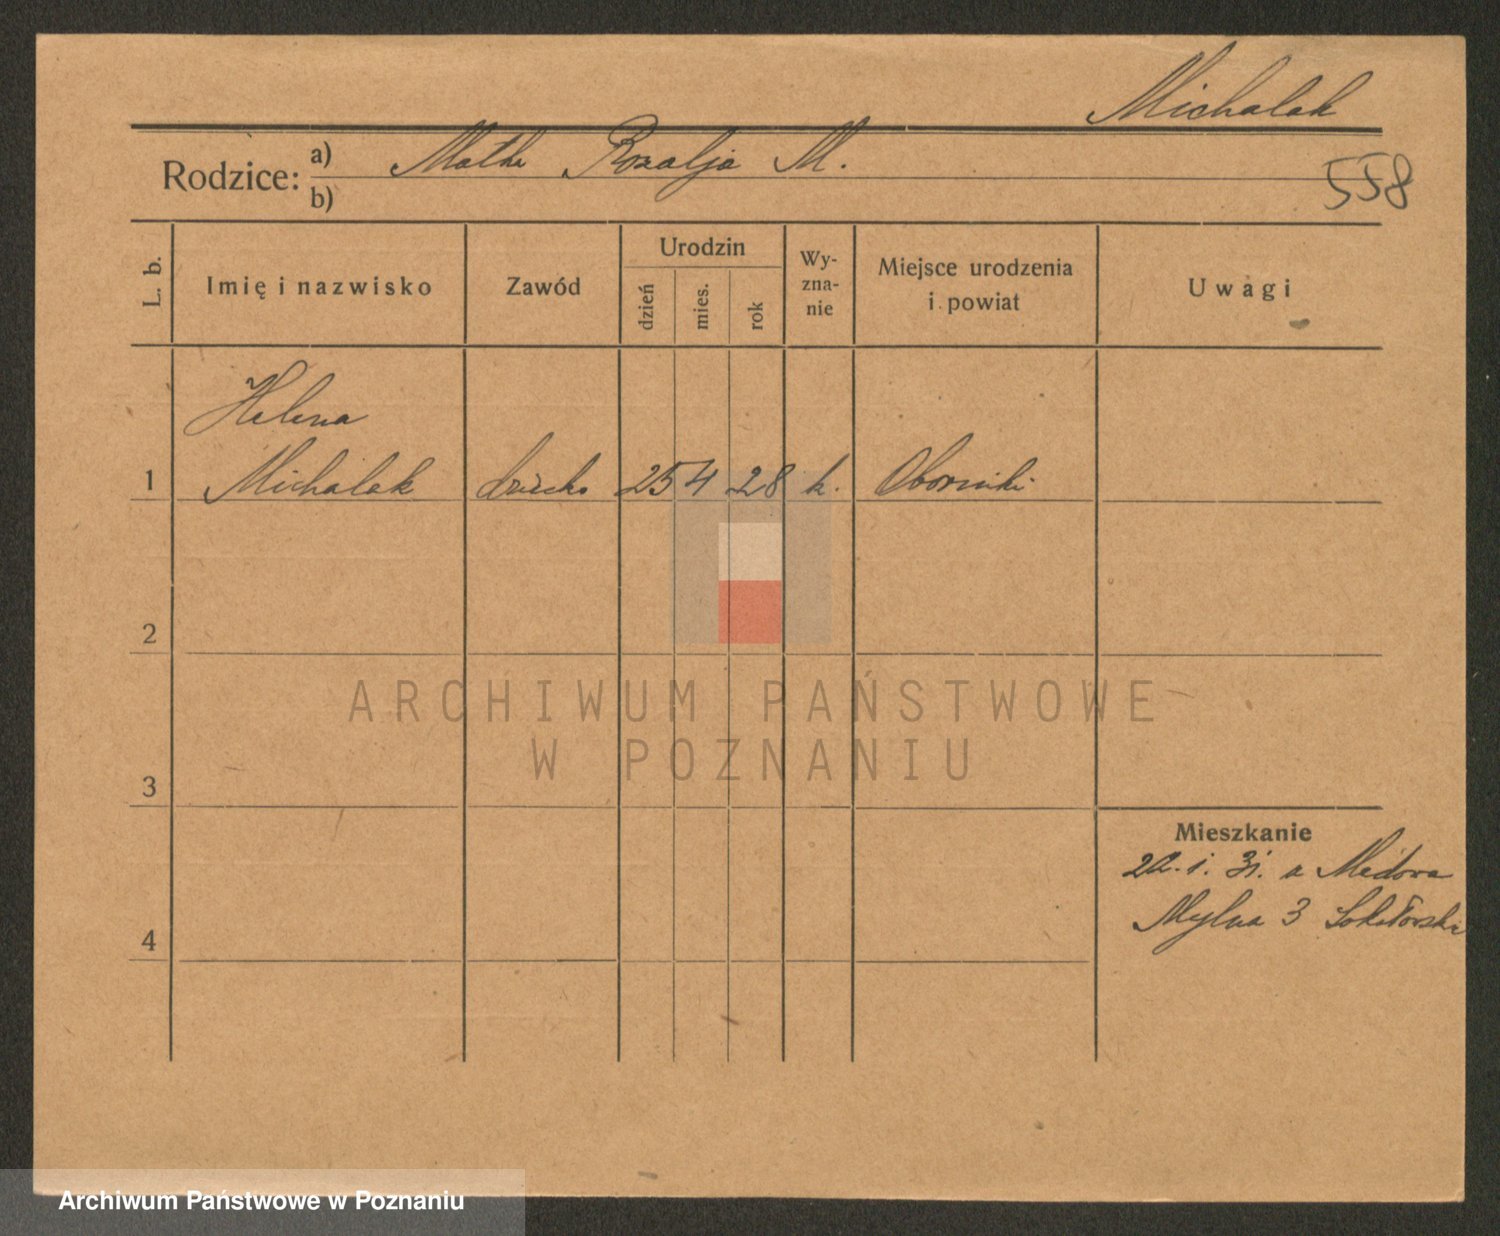 Michalak
Rodzice: a) Matka Rozalja M.
b)
558
L. b.
Imię i nazwisko
Zawód
Urodzin
dzień
mies.
rok
Wy-
zna-
nie
Miejsce urodzenia
i powiat
Uwagi
Helena
1 Michalak dziecko 25 4 28 k. Oborniki
2
3
4
Mieszkanie
22. 1. 31. u
Mylna 3
ARCHIWUM PAŃSTWOWE
W POZNANIU
Archiwum Państwowe w Poznaniu